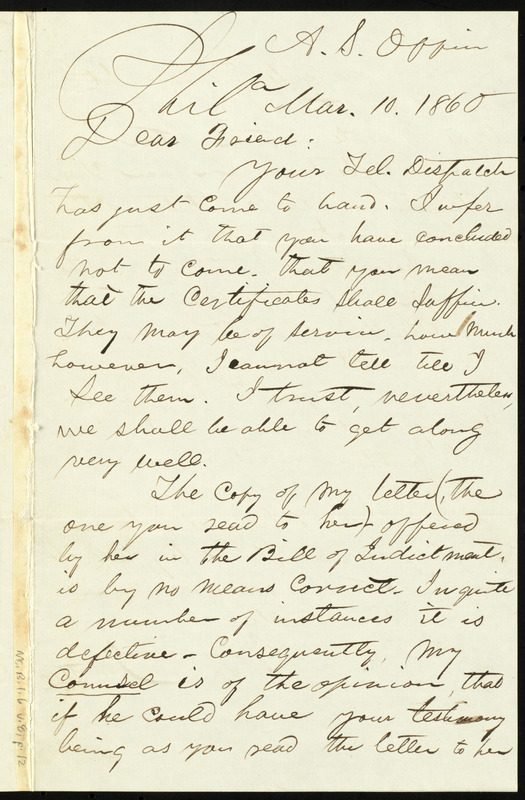 A. S. Office
Phila Mar. 10. 1860
Dear Friend:
Your Tel. Dispatch
has just come to hand. I infer
from it that you have concluded
not to come. that you mean
that the Certificates shall Suffice.
They may be of service, how much
however, I cannot tell till I
see them. I trust, nevertheless,
we shall be able to get along
very well.
The Copy of my letter (the
one you read to her) offered
by her in the Bill of Indictment,
is by no means Correct. In quite
a number of instances it is
defective - Consequently, my
Counsel is of the opinion, that
if he could have your testimony
being as you read the letter to her
Ms.B.1.6 v.8, p.12